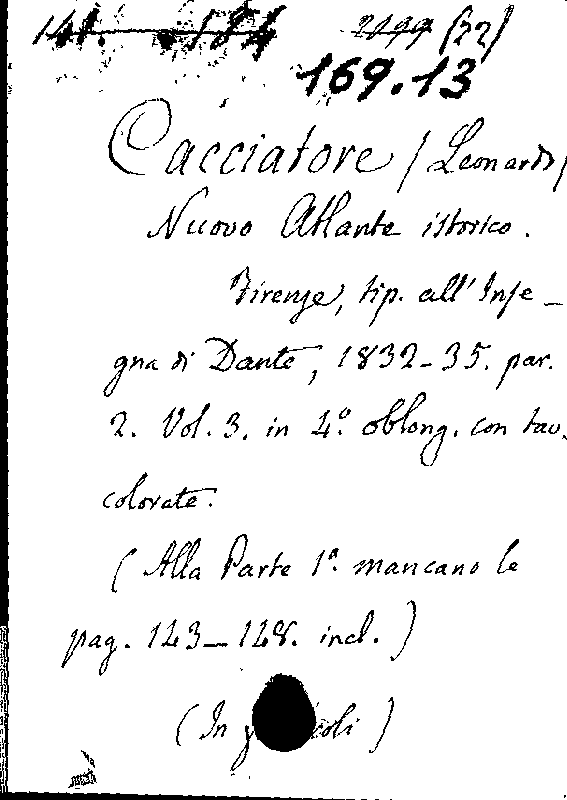 141. 184 2099 (22)
169.13
Cacciatore (Leonardo)
Nuovo Atlante istorico.
Firenze, tip. all'Inse-
gna di Dante, 1832-35. par.
2. Vol. 3. in 4.º oblong. con tav.
colorate.
(Alla Parte 1ª mancano le
pag. 143-148. incl.)
(In coli)